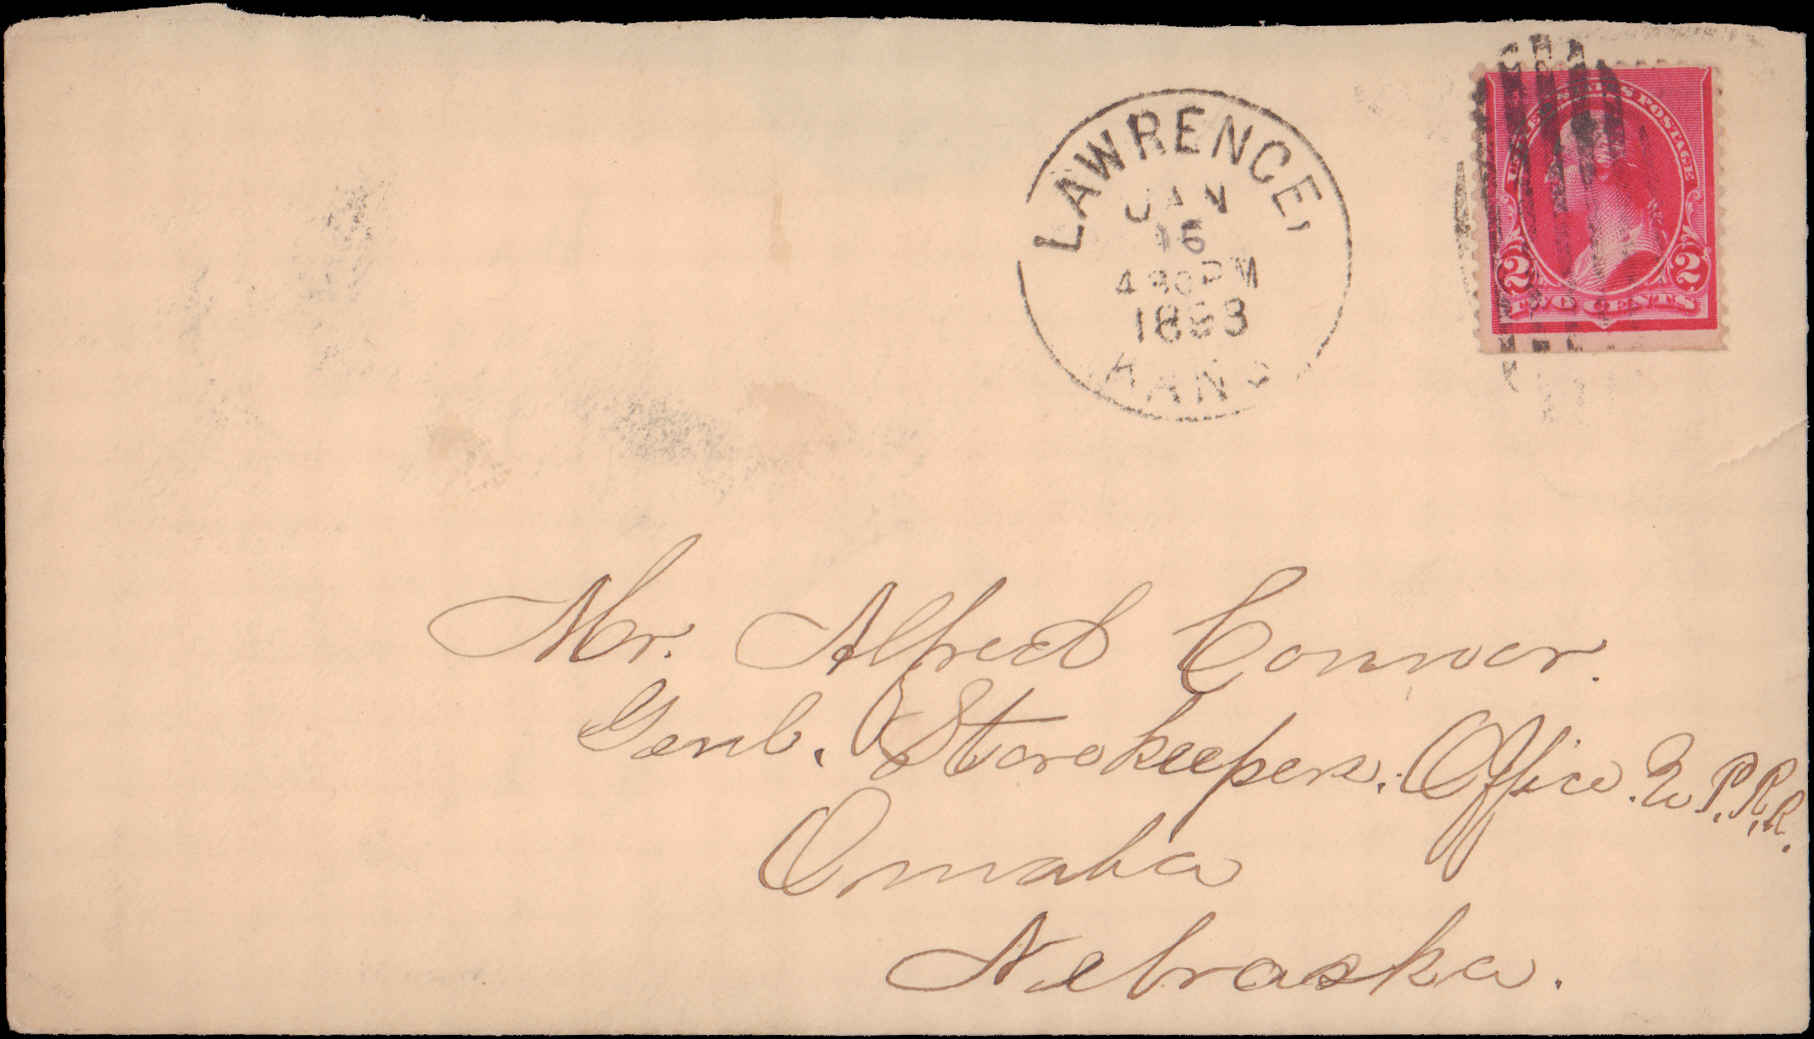 LAWRENCE,
JAN
16
430PM
1893
KANS
STATES POSTAGE
2 2
TWO CENTS
Mr. Alfred Connor.
Genl. Storekeepers. Office. U P.R.R.
Omaha
Nebraska.